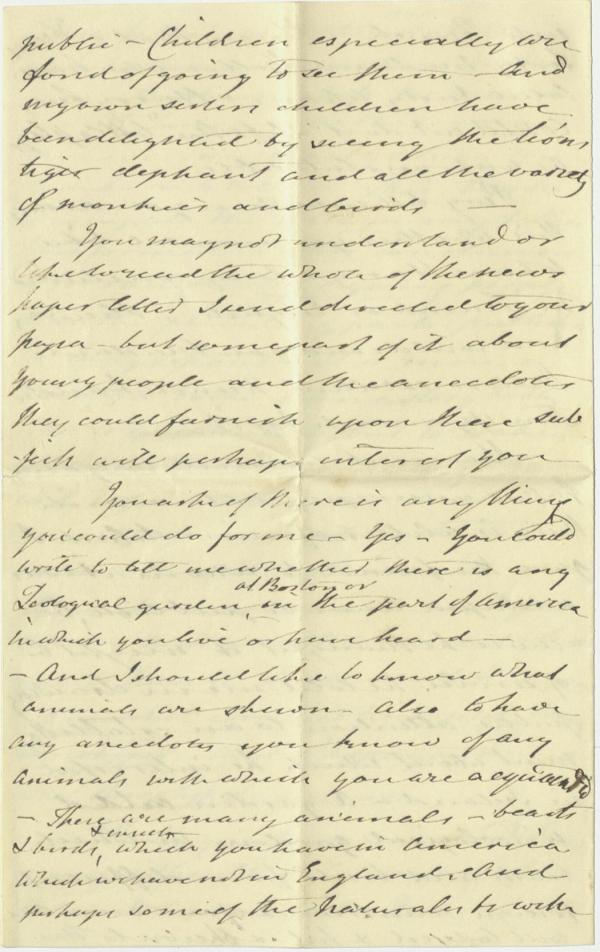 public – Children especially are
fond of going to see them – And
my own sisters children have
been delighted by seeing the lions
tiger elephant and all the variety
of monkies and birds —
You may not understand or
like to read the whole of the news
paper letter I send directed to your
papa – but some part of it about
young people and the anecdotes
they could furnish upon these sub
-jects will perhaps interest you
You ask if there is any thing
you could do for me – Yes – You could
write to tell me whether there is any
at Boston or
Zoological garden, in the part of America
in which you live or have heard —
– And I should like to know what
animals are shewn – also to have
any anecdotes you know of any
animals with which you are acquainted
– There are many animals – beasts
& insects
& birds, which you have in America
which we have not in England, And
perhaps some of the Naturalists with